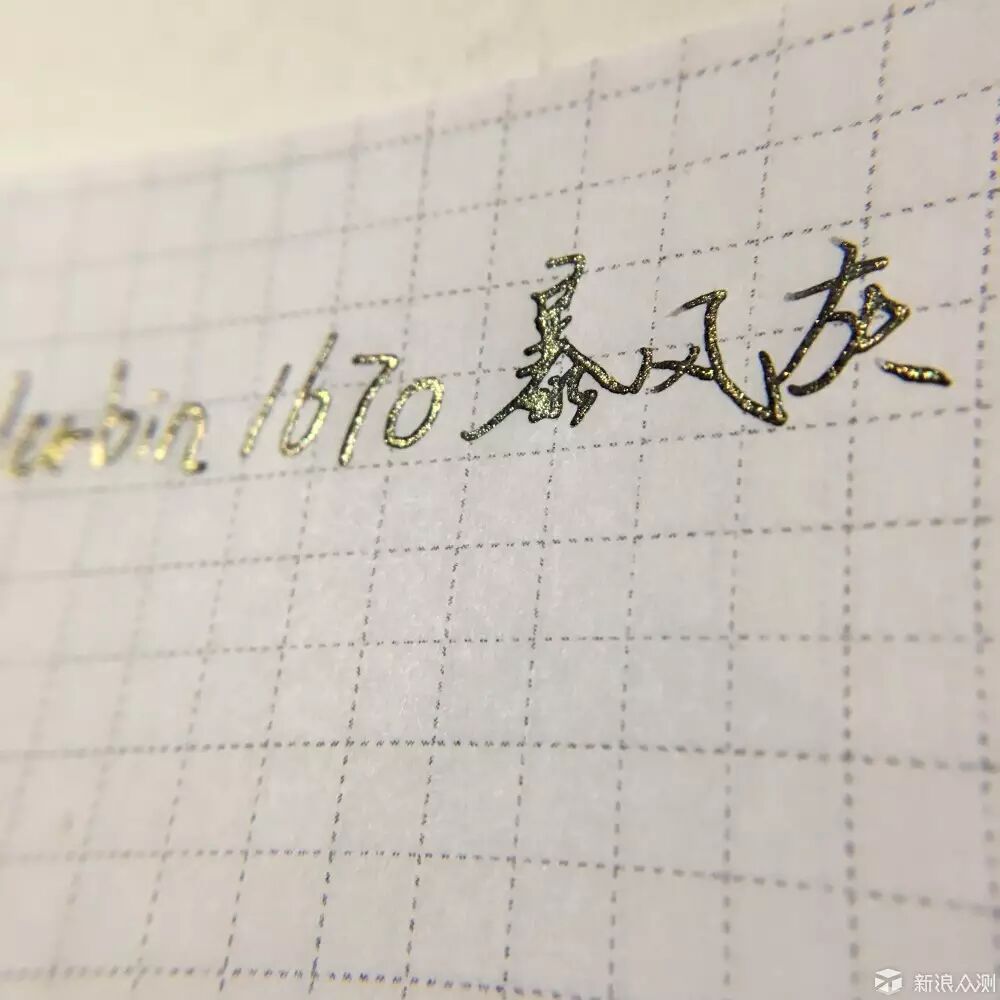 Herbin 1670 暴风灰
新浪众测